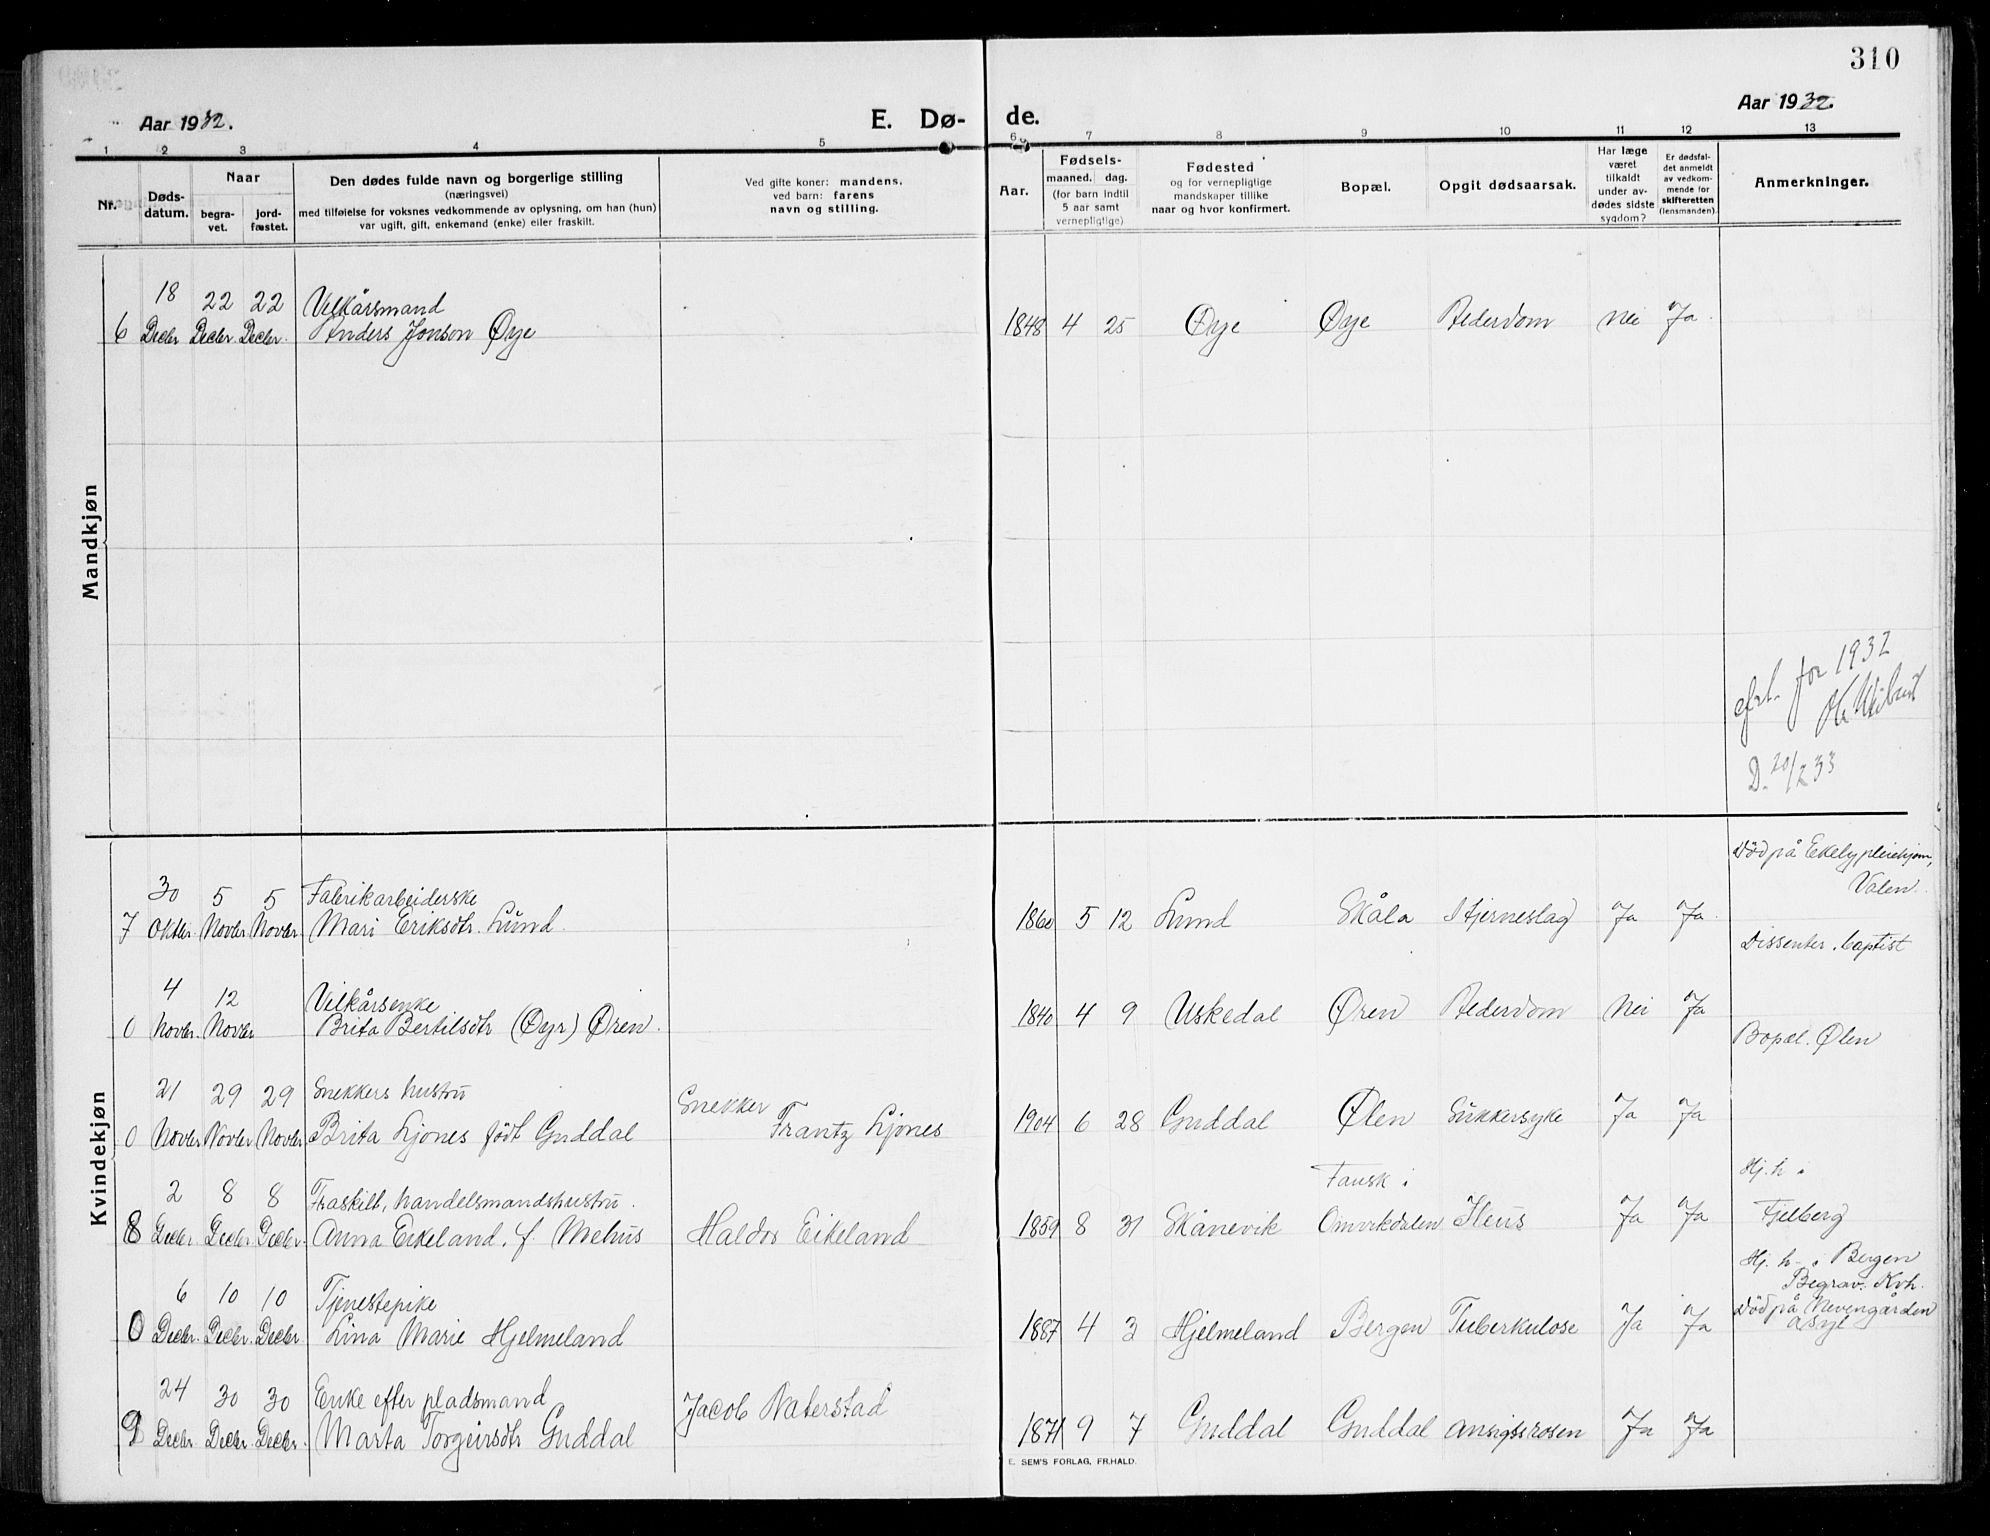 310
Aar 1932.
E. Dø-
de.
Aar 1932.
1 2 3 4 5 6 7 8 9 10 11 12 13
Nr.
Døds-
datum.
Naar
begra-
vet.
jord-
fæstet.
Den dødes fulde navn og borgerlige stilling
(næringsvei)
med tilføielse for voksnes vedkommende av oplysning, om han (hun)
var ugift, gift, enkemand (enke) eller fraskilt.
Ved gifte koner: mandens,
ved barn: farens
navn og stilling.
Aar.
Fødsels-
maaned. dag.
(for barn indtil
5 aar samt
vernepligtige)
Fødested
og for vernepligtige
mandskaper tillike
naar og hvor konfirmert.
Bopæl.
Opgit dødsaarsak.
Har læge
været
tilkaldt
under av-
dødes sidste
sygdom?
Er dødsfal-
det anmeldt
av vedkom-
mende for
skifteretten
(lensmanden).
Anmerkninger.
Mandkjøn
18 22 22 Vilkårsmand
6 Decbr. Decbr. Decbr. Anders Jonson Øye 1848 4 25 Øye Øye Alderdom Nei Ja.
for 1932
D. 20/2 33
Kvindekjøn
Död på Ekely pleiehjem,
Valen.
30 5 5 Fabrikarbeiderske
7 Oktbr. Novbr. Novbr. Mari Eriksdtr. Lund. 1860 5 12 Lund Skåla Hjerneslag Ja Ja.
Dissenter. baptist
4 12 Vilkårsenke
0 Novbr. Novbr Brita Bertilsdtr (Øyr) Ören. 1840 4 9 Uskedal Ören Alderdom Nei Ja
Bopæl. Ølen
21 29 29 Snekkers hustru Snekker
0 Novbr Novbr Novbr Brita Ljones födt Guddal Frantz Ljones 1904 6 28 Guddal Ølen Sukkersyke Ja Ja
Fausk i
Hj. h i
2 8 8 Fraskilt, handelsmandshustru.
8 Decbr. Decbr Decbr. Anna Eikeland, f. Mehus Haldor Eikeland 1859 8 31 Skånevik Omvikdalen Ileus Ja Ja Fjelberg
Hj. h. i Bergen
Begrav. Kvh.
6 10 10 Tjenestepike
0 Decbr. Decbr. Decbr Lina Marie Hjelmeland 1887 4 3 Hjelmeland Bergen Tuberkulose Ja Ja
Död på Nevengården
asyl
24 30 30 Enke efter pladsmand
9 Decbr Decbr Decbr. Marta Torgeirsdtr Guddal Jacob Naterstad 1871 9 7 Guddal Guddal Ansigtsrosen Ja Ja
E. SEM'S FORLAG, FR.HALD.